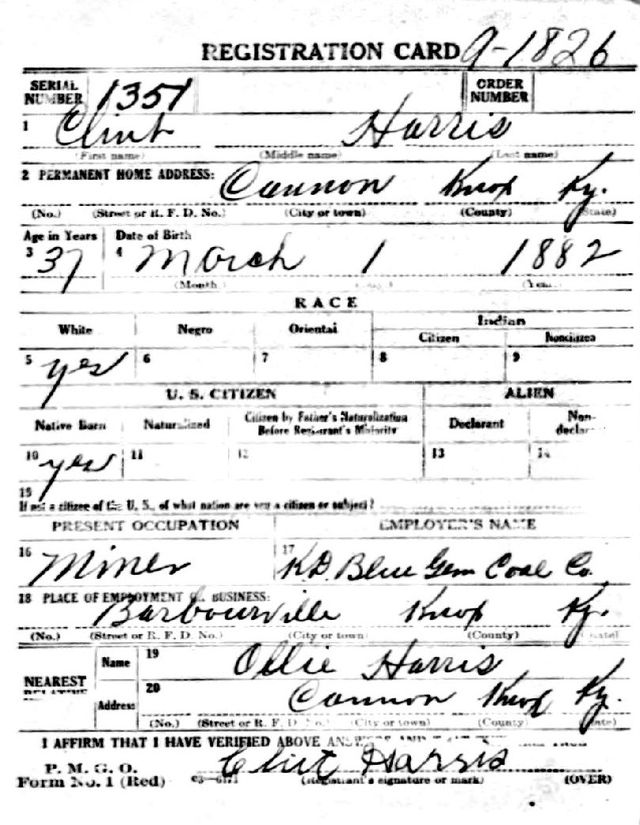 REGISTRATION CARD A-1826
SERIAL NUMBER 1351 ORDER NUMBER
1 Clint Harris
(First name) (Middle name) (Last name)
2 PERMANENT HOME ADDRESS: Cannon Knox Ky.
(No.) (Street or R. F. D. No.) (City or town) (County) (State)
Age in Years Date of Birth
3 37 4 March 1 1882
(Month) (Year)
RACE
White Negro Oriental Indian
Citizen Noncitizen
5 yes 6 7 8 9
U. S. CITIZEN ALIEN
Native Born Naturalized Citizen by Father's Naturalization Before Registrant's Majority Declarant Non-declar-
10 yes 11 12 13 14
15
If not a citizen of the U. S., of what nation are you a citizen or subject?
PRESENT OCCUPATION EMPLOYER'S NAME
16 Miner 17 K.D. Blue Gem Coal Co.
18 PLACE OF EMPLOYMENT BUSINESS:
Barbourville Knox Ky.
(No.) (Street or R. F. D. No.) (City or town) (County) (State)
NEAREST RELATIVE Name 19 Ollie Harris
Address 20 Cannon Knox Ky.
(No.) (Street or R. F. D. No.) (City or town) (County) (State)
I AFFIRM THAT I HAVE VERIFIED ABOVE
P. M. G. O. Clint Harris
Form No. 1 (Red) (Registrant's signature or mark) (OVER)